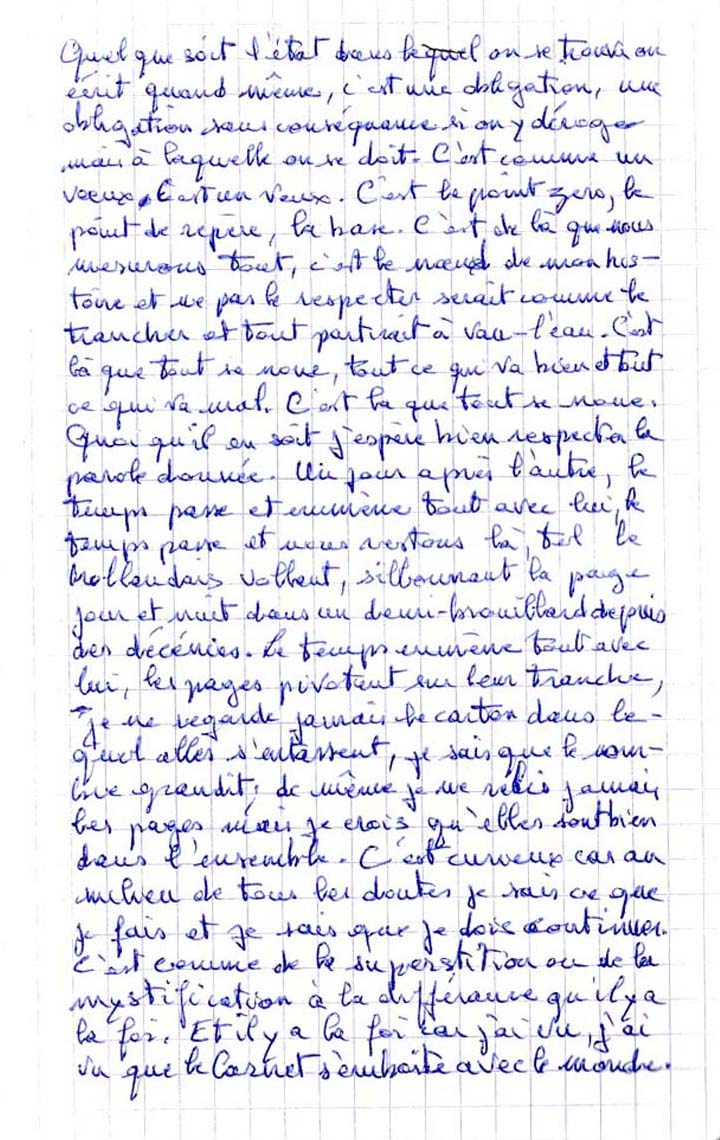 Quel que soit l'état dans lequel on se trouva on
écrit quand même, c'est une obligation, une
obligation sans conséquance si on y déroge
mais à laquelle on se doit. C'est comme un
voeux. C'est un Vœux. C'est le point zero, le
point de repère, la base. C'est de là que nous
mesurons tout, c'est le nœud de mon his-
toire et ne pas le respecter serait comme le
trancher et tout partirait à vau-l'eau. C'est
là que tout se noue, tout ce qui va bien et tout
ce qui va mal. C'est la que tout se noue.
Quoi qu'il en soit j'espère bien respecter la
parole donnée. Un jour après l'autre, le
temps passe et emmène tout avec lui, le
temps passe et nous restons là, tel le
hollandais vollant, sillonnant la page
jour et nuit dans un demi-brouillard depuis
des décénies. Le temps emmène tout avec
lui, les pages pivotent sur leur tranche,
je ne regarde jamais le carton dans le-
quel elles s'entassent, je sais que le nom-
bre grandit; de même je ne relis jamais
les pages mais je crois qu'elles sont bien
dans l'ensemble. C'est curieux car au
milieu de tous les doutes je sais ce que
je fais et je sais que je dois continuer.
C'est comme de la superstition ou de la
mystification à la différance qu'il y a
la foi. Et il y a la foi car j'ai vu, j'ai
vu que le Carnet s'emboite avec le monde.